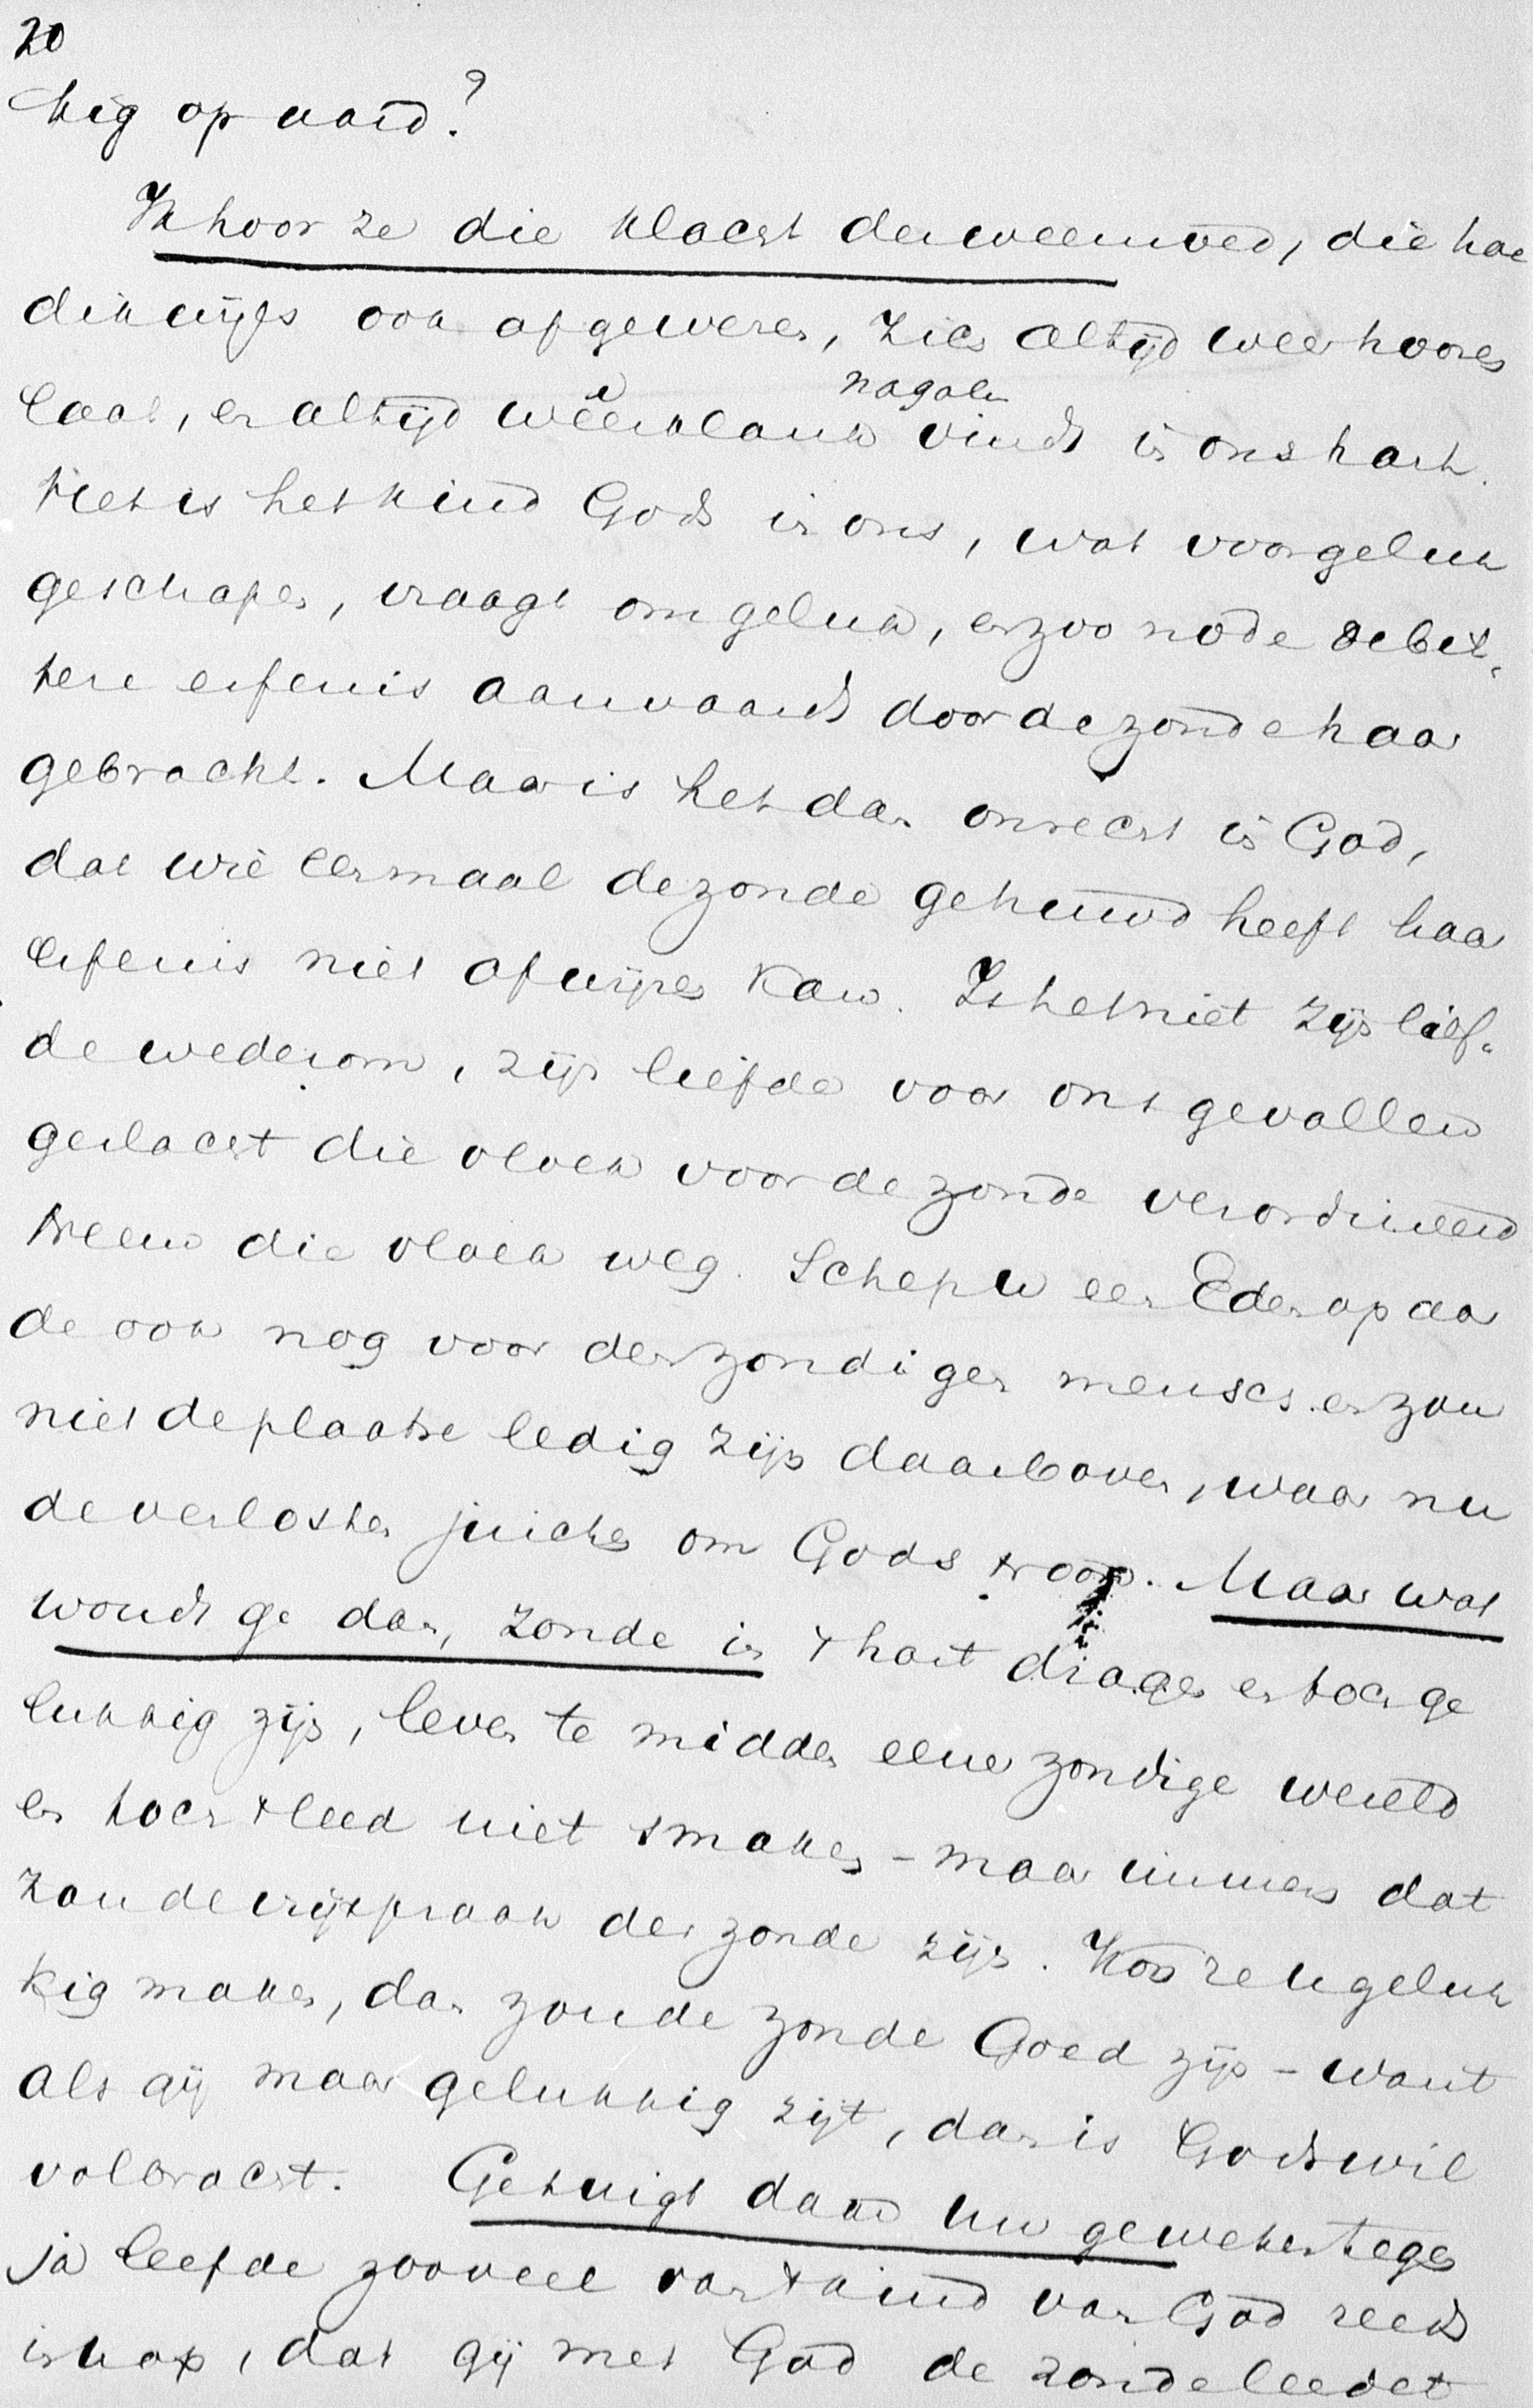 20
kig op aard?
Ik hoor ze die klacht der weemoed, die hoe
dikwijls ook afgewezen, zich altijd weer hooren
laat, en altijd weerklank nagalm vindt in ons hart.
Het is het kind Gods in ons, wat voor geluk
geschapen, vraagt om geluk, en zoo node de bit-
tere erfenis aanvaardt door de zonde haar
gebracht. Maar is het dan onrecht in God,
dat wie eenmaal de zonde gehuwd heeft haar
erfenis niet afwijzen kan. Is het niet zijn lief-
de wederom, zijn liefde voor ons gevallen
geslacht die vloek voor de zonde verordineerd
Neem die vloek weg. Schep u een Eden op aar
de ook nog voor den zondigen mensch en zou
niet de plaatse ledig zijn daarboven, waar nu
de verlosten juichen om Gods troon. Maar wat
woudt ge dan, zonde in 't hart dragen en toch ge
lukkig zijn, leven te midden eener zondige wereld
en toch 't leed niet smaken - maar immers dat
zou de vrijspraak der zonde zijn. Kon ze u geluk
kig maken, dan zoude zonde Goed zijn - want
als gij maar gelukkig zijt, dan is Gods wil
volbracht. Getuigt daar uw geweten tegen
ja leefde zooveel van 't kind van God reeds
in u op, dat gij met God de zonde